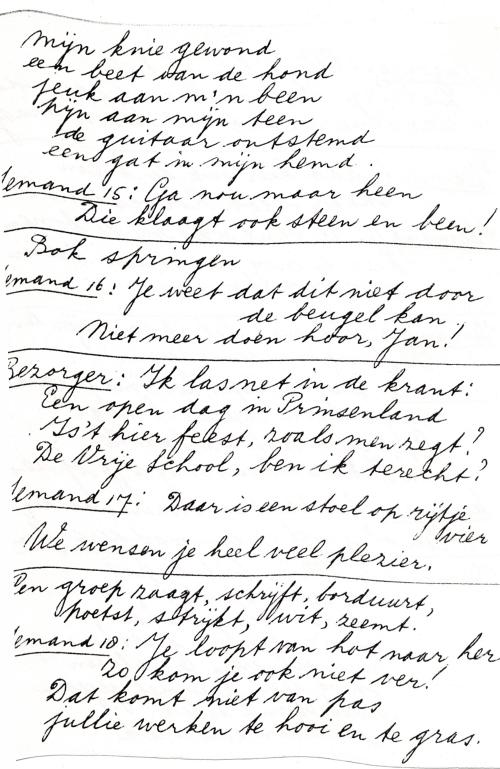 mijn knie gewond
een beet van de hond
jeuk aan m'n been
pijn aan mijn teen
de guitaar ontstemd
een gat in mijn hemd.
Iemand 15: Ga nou maar heen
Die klaagt ook steen en been!
Bok springen
Iemand 16: Je weet dat dit niet door
de beugel kan.
Niet meer doen hoor, Jan!
Bezorger: Ik las net in de krant:
Een open dag in Prinsenland
Is't hier feest, zoals men zegt?
De Vrije School, ben ik terecht?
Iemand 17: Daar is een stoel op rijtje
vier
We wensen je heel veel plezier.
Een groep zaagt, schrijft, borduurt,
poetst, strijkt, wit, zeemt.
Iemand 18: Je loopt van hot naar her
zo kom je ook niet ver!
Dat komt niet van pas
jullie werken te hooi en te gras.